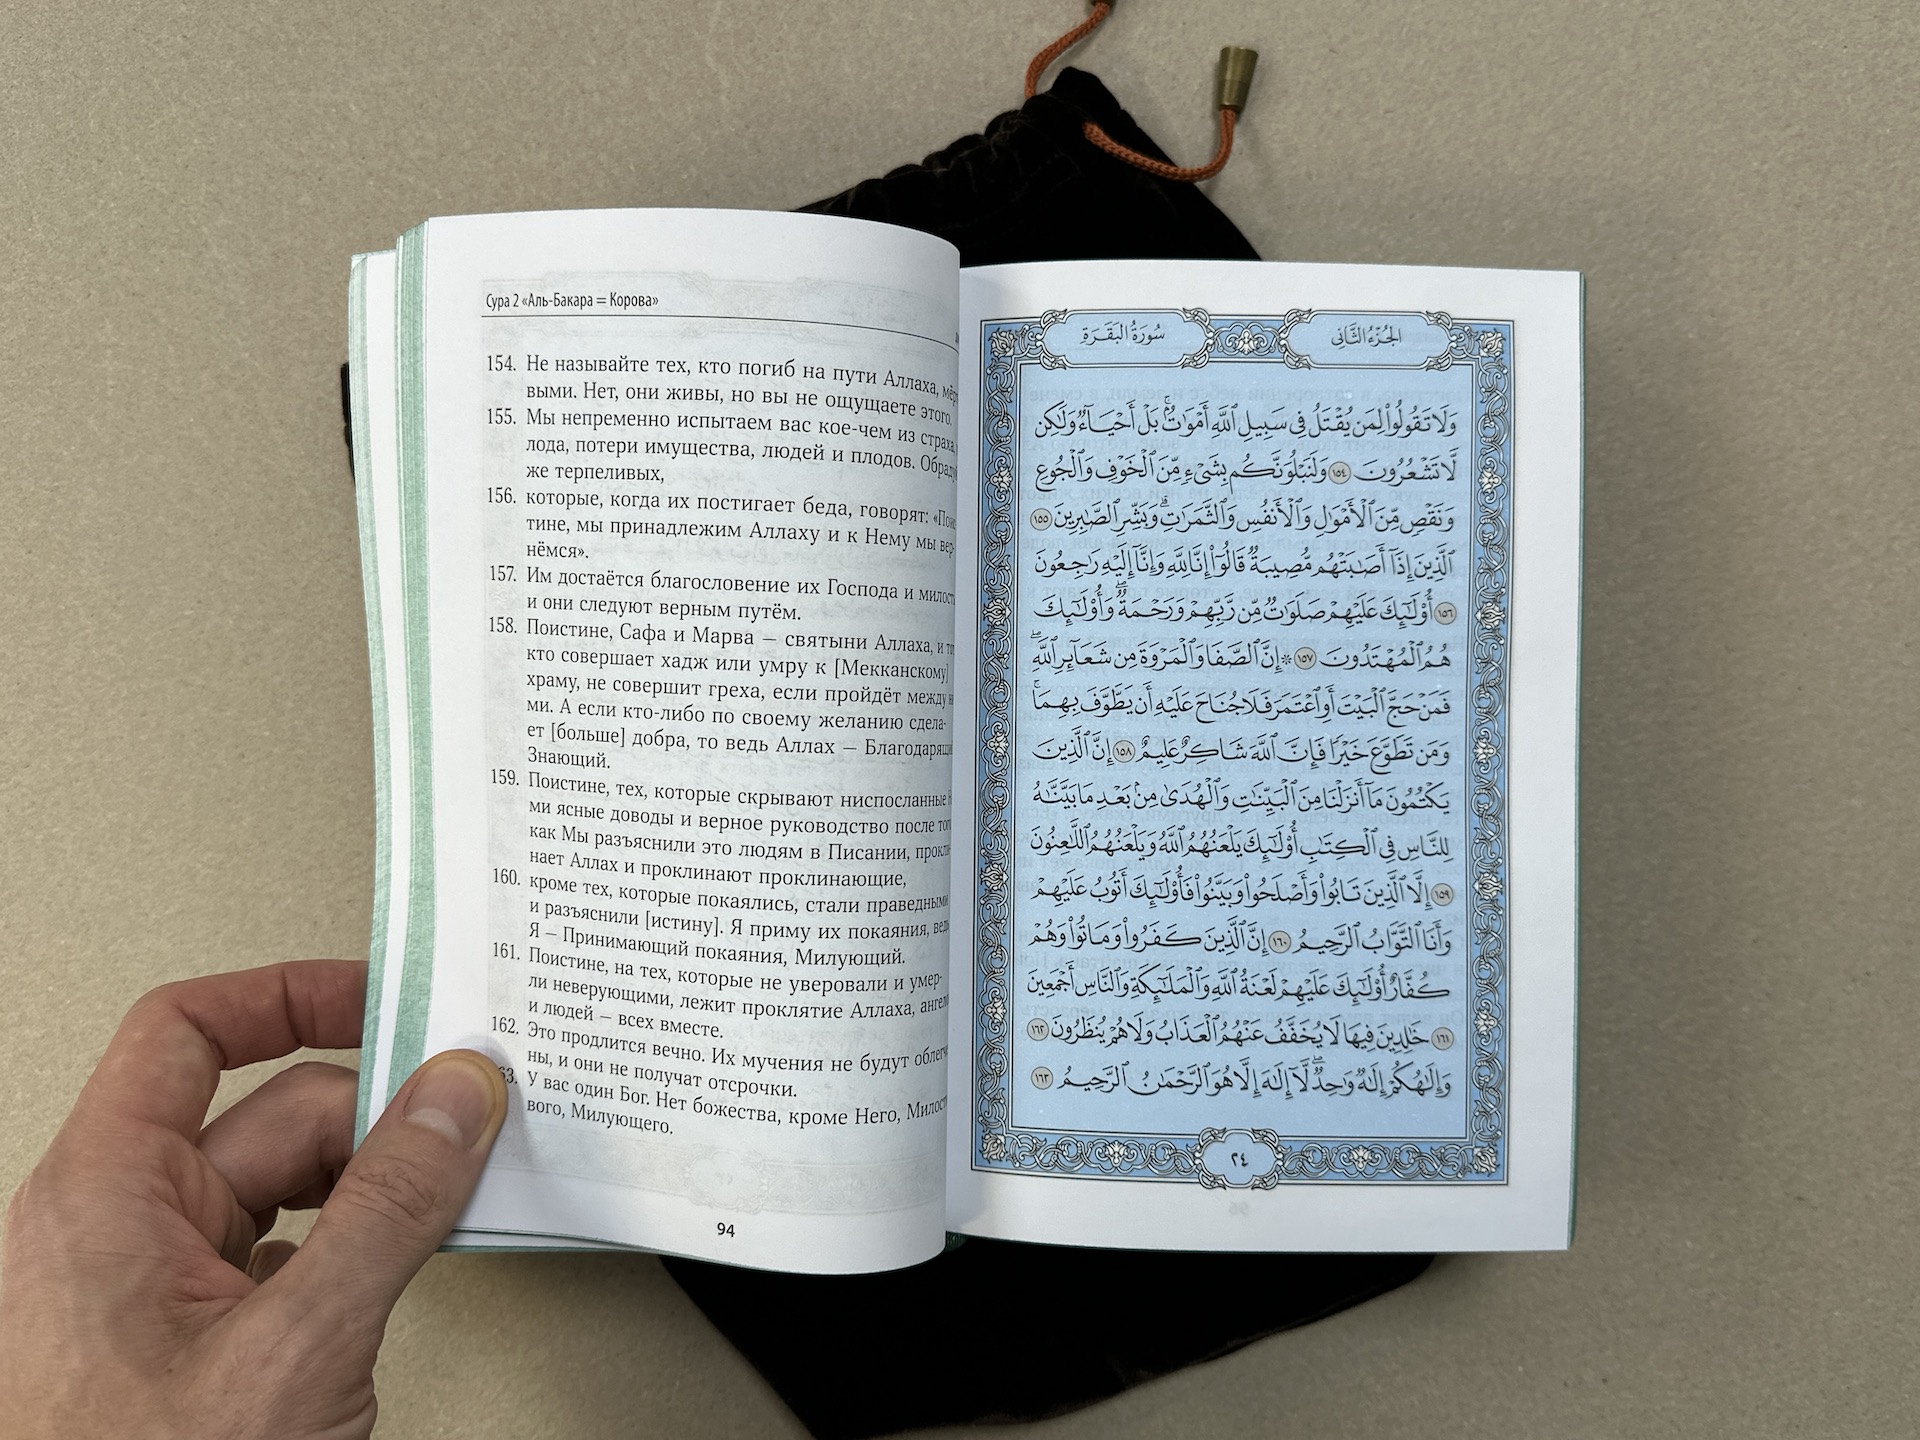 Сура 2 «Аль-Бакара = Корова»
154. Не называйте тех, кто погиб на пути Аллаха,
выми. Нет, они живы, но вы не ощущаете этого.
155. Мы непременно испытаем вас кое-чем из страха,
лода, потери имущества, людей и плодов.
же терпеливых,
156. которые, когда их постигает беда, говорят:
тине, мы принадлежим Аллаху и к Нему мы вер-
нёмся».
157. Им достаётся благословение их Господа и
и они следуют верным путём.
158. Поистине, Сафа и Марва — святыни Аллаха, и
кто совершает хадж или умру к [Мекканскому]
храму, не совершит греха, если пройдёт между
ми. А если кто-либо по своему желанию сдела-
ет [больше] добра, то ведь Аллах —
Знающий.
159. Поистине, тех, которые скрывают ниспосланные
ми ясные доводы и верное руководство после
как Мы разъяснили это людям в Писании,
нает Аллах и проклинают проклинающие,
160. кроме тех, которые покаялись, стали праведными
и разъяснили [истину]. Я приму их покаяния,
Я — Принимающий покаяния, Милующий.
161. Поистине, на тех, которые не уверовали и умер-
ли неверующими, лежит проклятие Аллаха,
и людей — всех вместе.
162. Это продлится вечно. Их мучения не будут
ны, и они не получат отсрочки.
63. У вас один Бог. Нет божества, кроме Него,
вого, Милующего.
94
الجُزْءُ الثَّانِي
سُورَةُ البَقَرَةِ
وَلَا تَقُولُوا۟ لِمَن يُقْتَلُ فِى سَبِيلِ ٱللَّهِ أَمْوَٰتٌۢ ۚ بَلْ أَحْيَآءٌ وَلَـٰكِن
لَّا تَشْعُرُونَ ١٥٤ وَلَنَبْلُوَنَّكُم بِشَىْءٍ مِّنَ ٱلْخَوْفِ وَٱلْجُوعِ
وَنَقْصٍ مِّنَ ٱلْأَمْوَٰلِ وَٱلْأَنفُسِ وَٱلثَّمَرَٰتِ ۗ وَبَشِّرِ ٱلصَّـٰبِرِينَ ١٥٥
ٱلَّذِينَ إِذَآ أَصَـٰبَتْهُم مُّصِيبَةٌ قَالُوٓا۟ إِنَّا لِلَّهِ وَإِنَّآ إِلَيْهِ رَٰجِعُونَ
١٥٦ أُو۟لَـٰٓئِكَ عَلَيْهِمْ صَلَوَٰتٌ مِّن رَّبِّهِمْ وَرَحْمَةٌ ۖ وَأُو۟لَـٰٓئِكَ
هُمُ ٱلْمُهْتَدُونَ ١٥٧ ۞ إِنَّ ٱلصَّفَا وَٱلْمَرْوَةَ مِن شَعَآئِرِ ٱللَّهِ ۖ
فَمَنْ حَجَّ ٱلْبَيْتَ أَوِ ٱعْتَمَرَ فَلَا جُنَاحَ عَلَيْهِ أَن يَطَّوَّفَ بِهِمَا ۚ
وَمَن تَطَوَّعَ خَيْرًا فَإِنَّ ٱللَّهَ شَاكِرٌ عَلِيمٌ ١٥٨ إِنَّ ٱلَّذِينَ
يَكْتُمُونَ مَآ أَنزَلْنَا مِنَ ٱلْبَيِّنَـٰتِ وَٱلْهُدَىٰ مِنۢ بَعْدِ مَا بَيَّنَّـٰهُ
لِلنَّاسِ فِى ٱلْكِتَـٰبِ أُو۟لَـٰٓئِكَ يَلْعَنُهُمُ ٱللَّهُ وَيَلْعَنُهُمُ ٱللَّـٰعِنُونَ
١٥٩ إِلَّا ٱلَّذِينَ تَابُوا۟ وَأَصْلَحُوا۟ وَبَيَّنُوا۟ فَأُو۟لَـٰٓئِكَ أَتُوبُ عَلَيْهِمْ
وَأَنَا ٱلتَّوَّابُ ٱلرَّحِيمُ ١٦٠ إِنَّ ٱلَّذِينَ كَفَرُوا۟ وَمَاتُوا۟ وَهُمْ
كُفَّارٌ أُو۟لَـٰٓئِكَ عَلَيْهِمْ لَعْنَةُ ٱللَّهِ وَٱلْمَلَـٰٓئِكَةِ وَٱلنَّاسِ أَجْمَعِينَ
١٦١ خَـٰلِدِينَ فِيهَا لَا يُخَفَّفُ عَنْهُمُ ٱلْعَذَابُ وَلَا هُمْ يُنظَرُونَ ١٦٢
وَإِلَـٰهُكُمْ إِلَـٰهٌ وَٰحِدٌ ۖ لَّآ إِلَـٰهَ إِلَّا هُوَ ٱلرَّحْمَـٰنُ ٱلرَّحِيمُ ١٦٣
٢٤